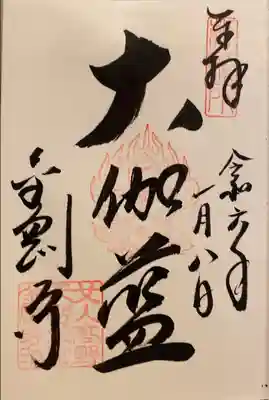 奉拝
令和六年
一月八日
大伽藍
金剛寺